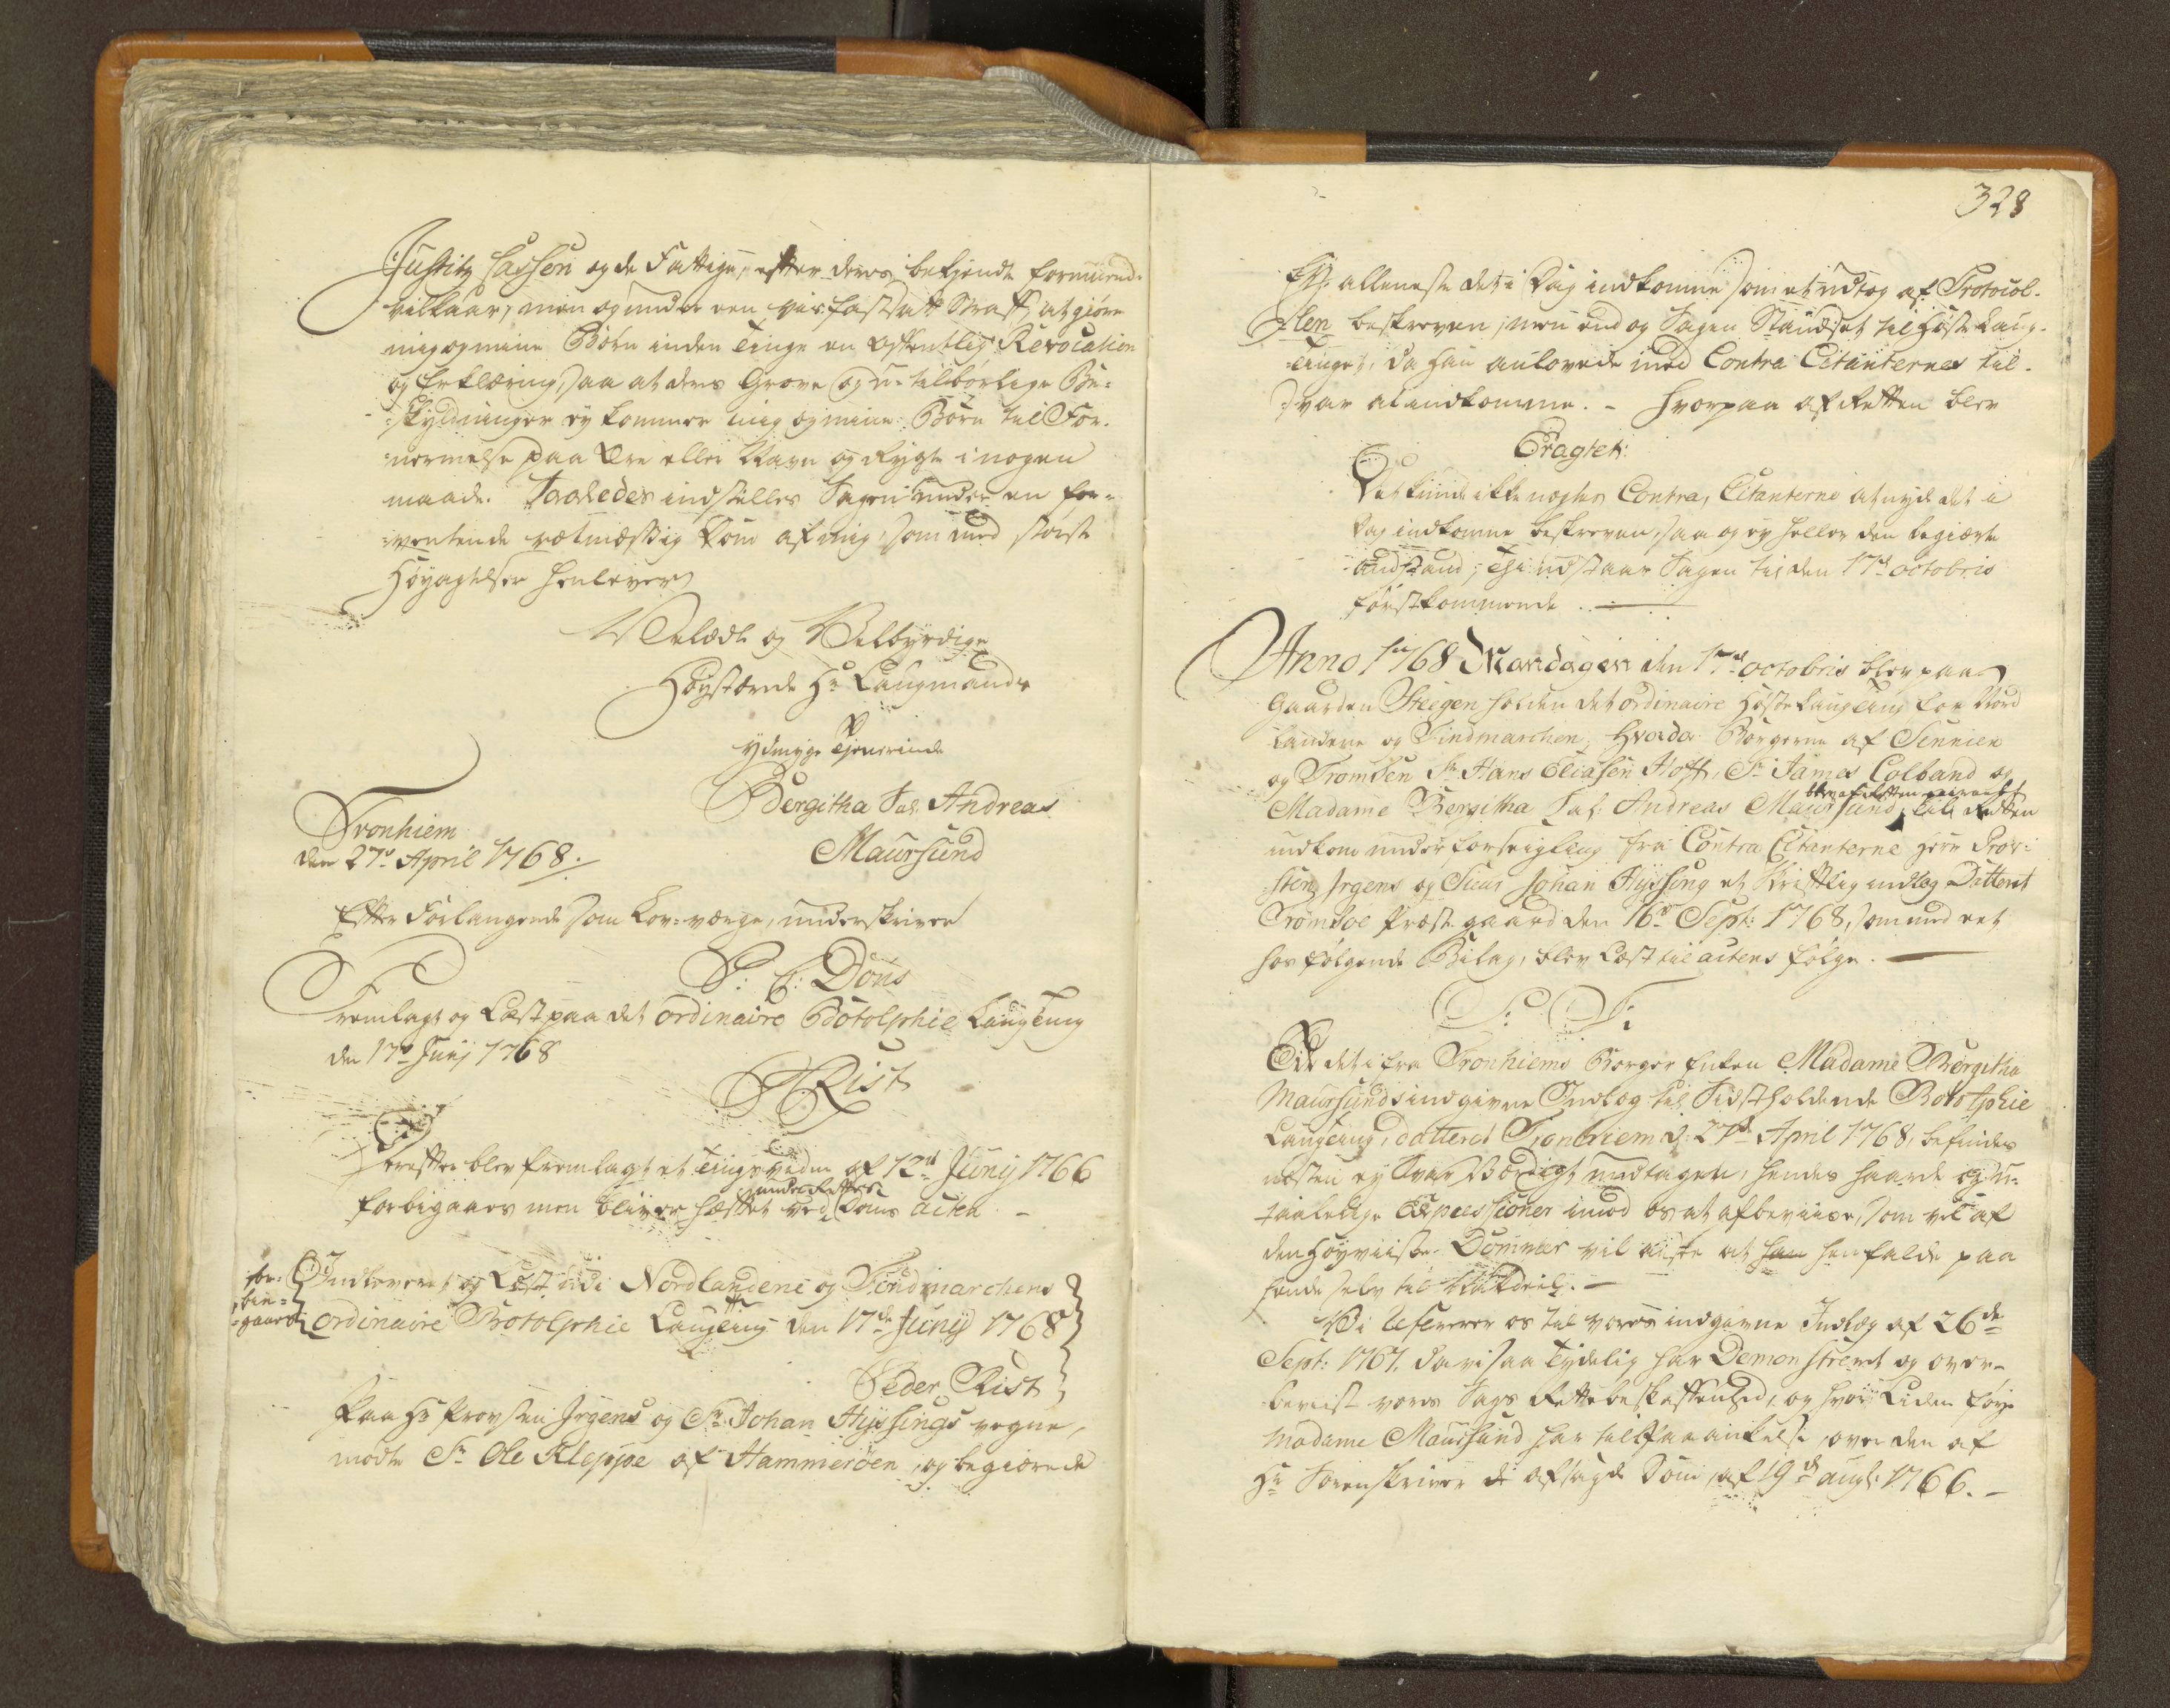 Justitz Cassen og de Fattige, efter deres bekjendte formuend-
vilkaar, men og under een vis fastsatt Straff, at giøre
mig og mine Børn inden Tinge en offentlig Revocation
og Erklæring, saa at dens Grove og u-tilbørlige Be-
skyldninger ey kommer mig og mine Børn til For-
nermelse paa Ære eller Navn og Rygte i nogen
maade. Saaledes indstilles Sagen under en for-
ventende retmæssig Dom af mig, som med störste
Høyagtelse henlever
Velædle og Velbyrdige
Høystærede Hr Laugmands
ydmyge Tjenerinde
Bergitha Sal. Andreas
Maursund
Tronhiem
den 27de April 1768.
Efter Forlangende som Lov-værge, underskriver
P: C: Dons
Fremlagt og Læst paa det ordinaire Botolphie Laugting
den 17de Junj 1768
P Rist
Derefter blev fremlagt et Tingsvidne af 12te Junij 1766
forbigaaes men bliver hæftet ved under Rettens Doms acten. -
for-
bie-
gaaes
Indleveret og Læst udi Nordlandene og Findmarchens
ordinaire Botolphie Laugting den 17de Junij 1768
Peder Rist
Paa Hr Provsten Jrgens og Sr Johan Hysings vegne,
mødte Sr Ole Kleppe af Hammerøen, og begiærede
328
Ey alleneste det i Dag indkomne som et udtog af Protocol-
len beskreven, men end og Sagen Standset til Høste Laug-
tinget, da han anlovede med Contra Citanternes til-
svar at indkomme. - Hvorpaa af Retten blev
Eragtet:
Det kunde ikke nægtes Contra, Citanterne at nyde det i
Dag indkomne beskreven, saa og ey heller den begiærte
Anstand; Thi udstaar Sagen til den 17de octobris
førstkommende.
Anno 1768 Mandagen den 17de octobris blev paa
Gaarden Steegen holden det ordinaire Høste Laugting for Nord
Landene og Findmarchen, Hvorda Borgerne af Sennien
og Tromsen Sr Hans Eliasen Hoff, Sr James Colband og
blev af Retten
Madame Bergitha Sal: Andreas Maursund, til Retten
indkom under forseigling fra Contra Citanterne Herr Prov-
sten Jrgens og Sieur Johan Hysing et Skriftlig indlæg Datteret
Tromsøe Præste gaard den 16de Sept: 1768, som med det
hos følgende Bilag, blev Læst til actens følge.
P: T:
Ved det i fra Tronhiems Borger Enken Madame Bergitha
Maursunds indgivne Indlæg til Sidstholdende Botolphie
Laugting, datteret Tronhiem d: 27de April 1768, befindes
næsten ey Svar Værdigt medtagen, hendes haarde og u-
taalelige Expressioner imod os at afbeviise, som vel af
den Høyviise Dommer vil ansees at han henfalde paa
hende selv til .-
Vi refererer os til vores indgivne Indlæg af 26de
Sept: 1767, da vi saa Tydelig har Demonstreret og over-
beviist vores Sags Rette beskaffenhed, og hvor Liden føye
Madame Maursund har til paaankelse over den af
Hr Sorenskriver afsagde Dom, af 19de aug: 1766. -